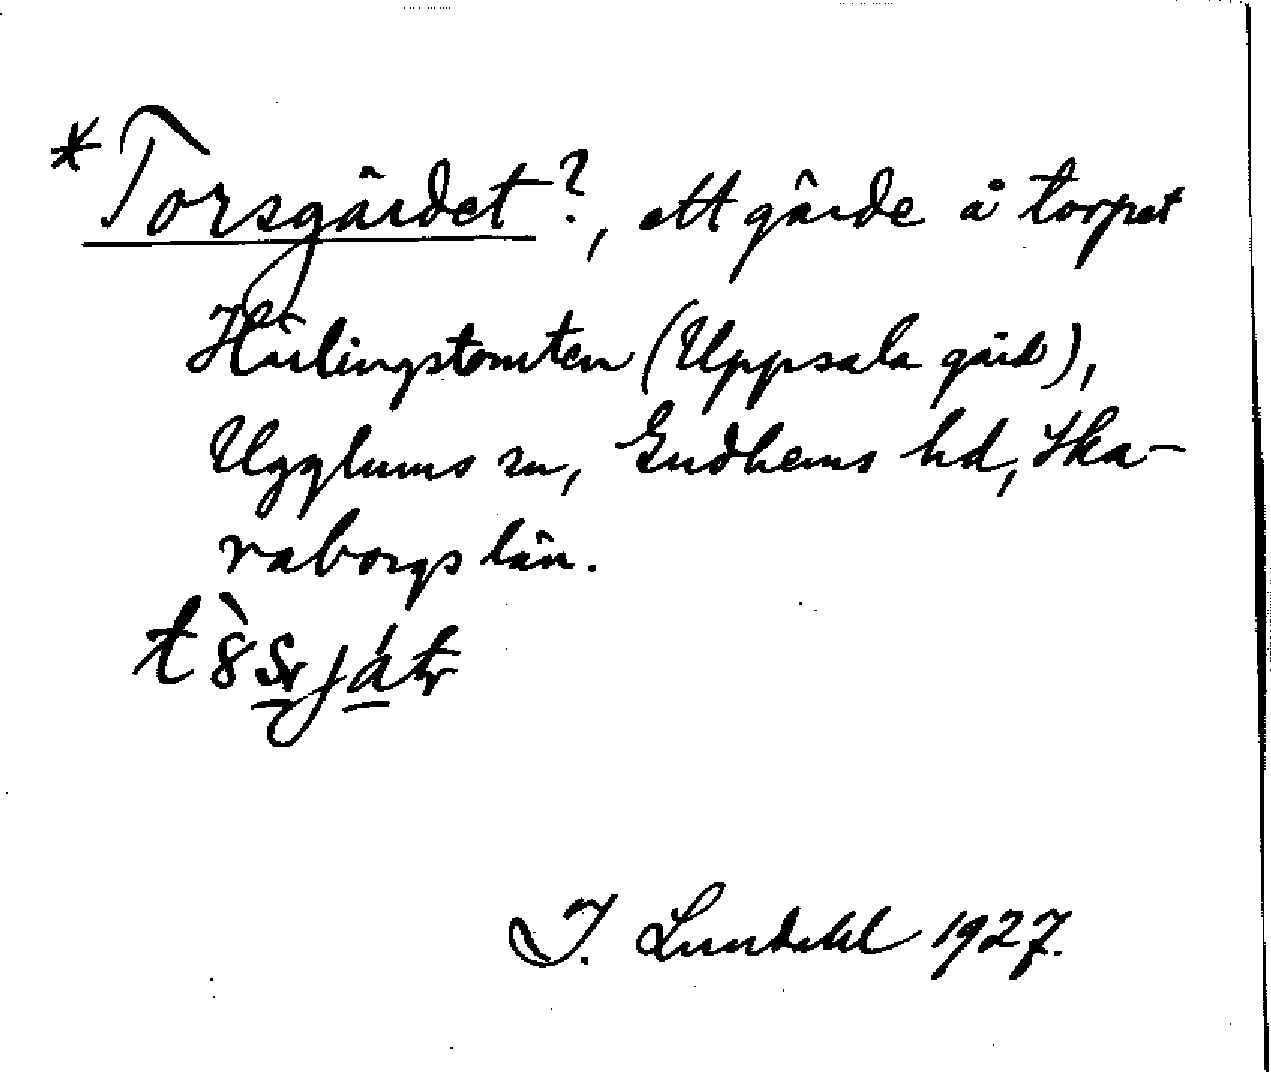 *Torsgärdet?, ett gärde å torpet
Härlingstomten (Uppsala gård),
Ugglums sn, Gudhems hd, Ska-
raborgs län.
I. Lundahl 1927.